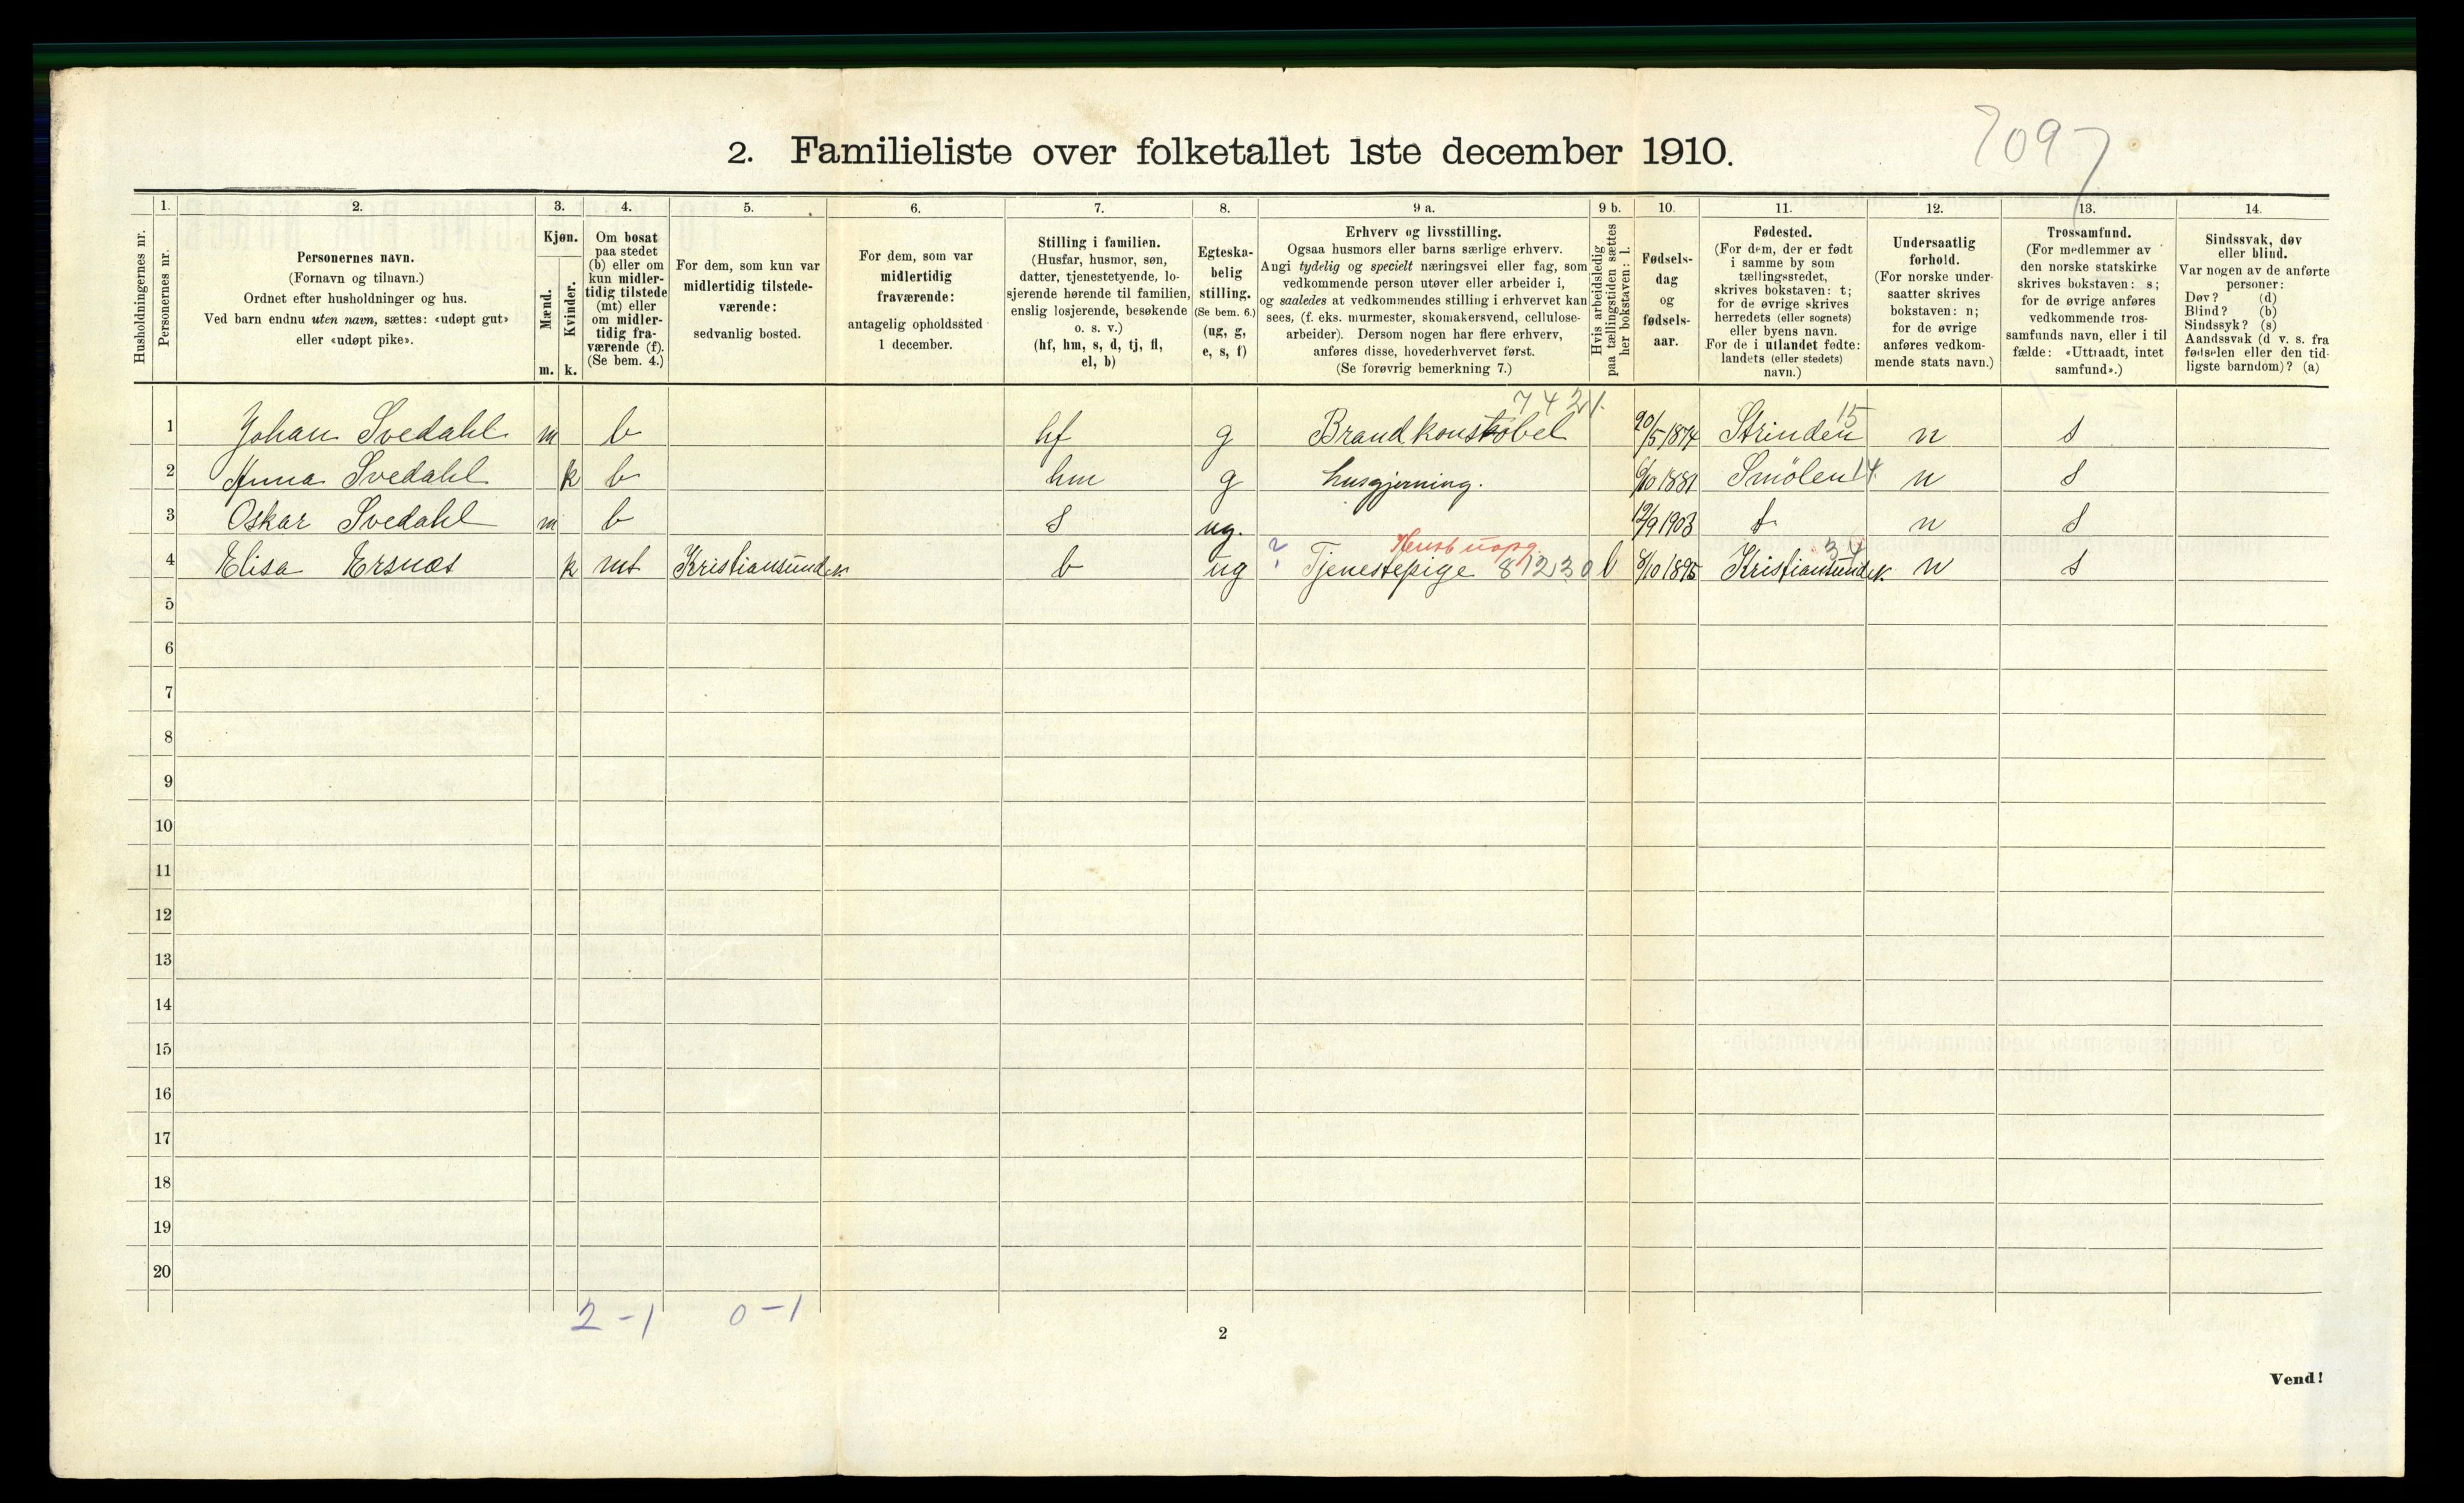 7097
2. Familieliste over folketallet 1ste december 1910.
Husholdningernes nr.
1. Personernes nr.
2. Personernes navn.
(Fornavn og tilnavn.)
Ordnet efter husholdninger og hus.
Ved barn endnu uten navn, sættes: «udøpt gut»
eller «udøpt pike».
3. Kjøn.
Mænd. m.
Kvinder. k.
4. Om bosat
paa stedet
(b) eller om
kun midler-
tidig tilstede
(mt) eller
om midler-
tidig fra-
værende (f).
(Se bem. 4.)
5. For dem, som kun var
midlertidig tilstede-
værende:
sedvanlig bosted.
6. For dem, som var
midlertidig
fraværende:
antagelig opholdssted
1 december.
7. Stilling i familien.
(Husfar, husmor, søn,
datter, tjenestetyende, lo-
sjerende hørende til familien,
enslig losjerende, besøkende
o. s. v.)
(hf, hm, s, d, tj, fl,
el, b)
8. Egteska-
belig
stilling.
(Se bem. 6.)
(ug, g,
e, s, f)
9 a. Erhverv og livsstilling.
Ogsaa husmors eller barns særlige erhverv.
Angi tydelig og specielt næringsvei eller fag, som
vedkommende person utøver eller arbeider i,
og saaledes at vedkommendes stilling i erhvervet kan
sees, (f. eks. murmester, skomakersvend, cellulose-
arbeider). Dersom nogen har flere erhverv,
anføres disse, hovederhvervet først.
(Se forøvrig bemerkning 7.)
9 b. Hvis arbeidsledig
paa tællingstiden sættes
her bokstaven: l.
10. Fødsels-
dag
og
fødsels-
aar.
11. Fødested.
(For dem, der er født
i samme by som
tællingsstedet,
skrives bokstaven: t;
for de øvrige skrives
herredets (eller sognets)
eller byens navn.
For de i utlandet fødte:
landets (eller stedets)
navn.)
12. Undersaatlig
forhold.
(For norske under-
saatter skrives
bokstaven: n;
for de øvrige
anføres vedkom-
mende stats navn.)
13. Trossamfund.
(For medlemmer av
den norske statskirke
skrives bokstaven: s;
for de øvrige anføres
vedkommende tros-
samfunds navn, eller i til
fælde: «Uttraadt, intet
samfund».)
14. Sindssvak, døv
eller blind.
Var nogen av de anførte
personer:
Døv? (d)
Blind? (b)
Sindssyk? (s)
Aandssvak (d v. s. fra
fødselen eller den tid-
ligste barndom)? (a)
1 Johan Svedahl m b hf g Brandkonstobel 20/5 1874 Strinden 15 n s
2 Anna Svedahl k b hm g husgjerning. 6/10 1881 Smölen 14 n s
3 Oskar Svedahl m b s ug. 12/9 1903 t n s
4 Elisa Ersnæs k mt Kristiansund N. b ug ? Tjenestepige 81230 l 6/10 1895 Kristiansund N. 34 n s
5
6
7
8
9
10
11
12
13
14
15
16
17
18
19
20
2-1 0-1
2
Vend!